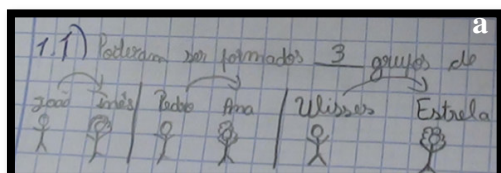 a
1.1) Poderam ser formados 3 grupos de
João Inês Pedro Ana Ulisses Estrela